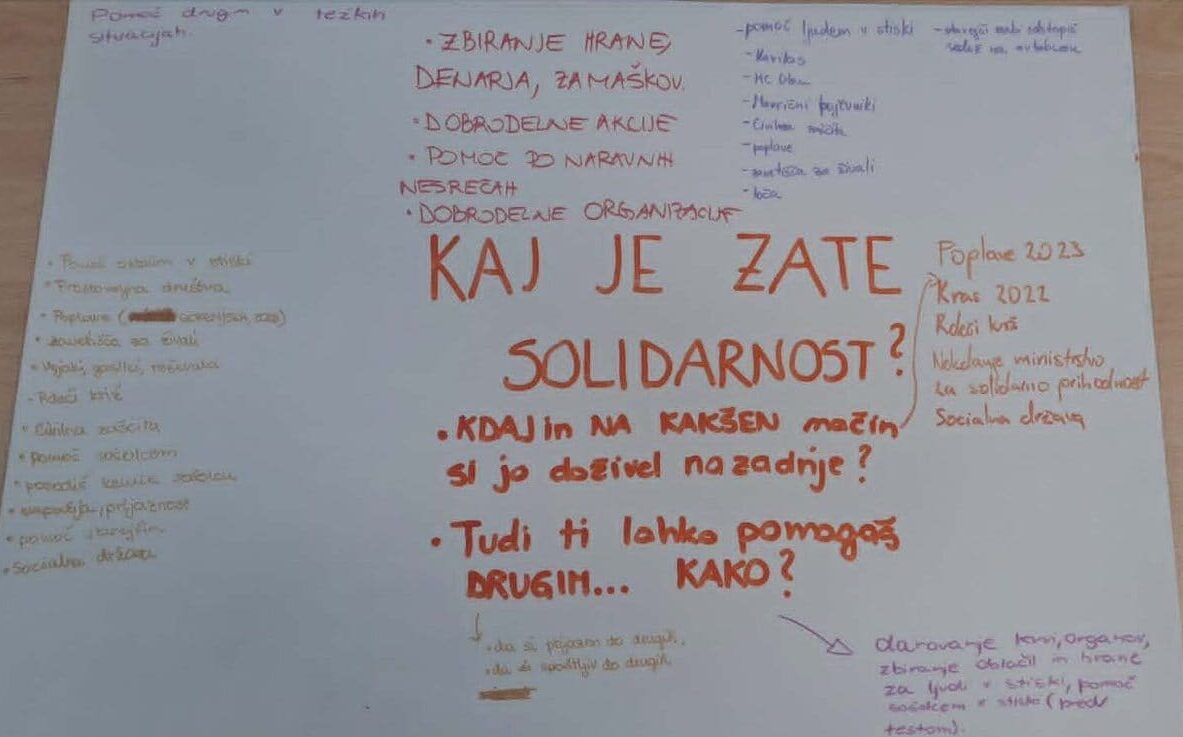 Pomoč drugim v težkih
situacijah.
• ZBIRANJE HRANE,
DENARJA, ZAMAŠKOV.
• DOBRODELNE AKCIJE
• POMOČ PO NARAVNIH
NESREČAH
• DOBRODELNE ORGANIZACIJE
- pomoč ljudem v stiski
- Karitas
- MC
- Civilna zaščita
- poplave
- zavetišča za živali
KAJ JE ZATE
SOLIDARNOST?
• KDAJ in NA KAKŠEN način
si jo doživel nazadnje?
• Tudi ti lahko pomagaš
DRUGIM... KAKO?
Poplave 2023
Kras 2022
Rdeči križ
Nekdanje ministrstvo
za solidarno prihodnost
Socialna država
• Pomoč v stiski
• Prostovoljna društva
• Poplave
• zavetišča za živali
gasilci,
• Rdeči križ
• Civilna zaščita
• pomoč sošolcem
• posodiš sošolcu
• empatija, prijaznost
• pomoč starejšim
• Socialna država
• da si prijazen do drugih,
• da si spoštljiv do drugih
darovanje krvi, organov,
zbiranje oblačil in hrane
za ljudi v stiski, pomoč
sošolcem v stiski (pred
testom).